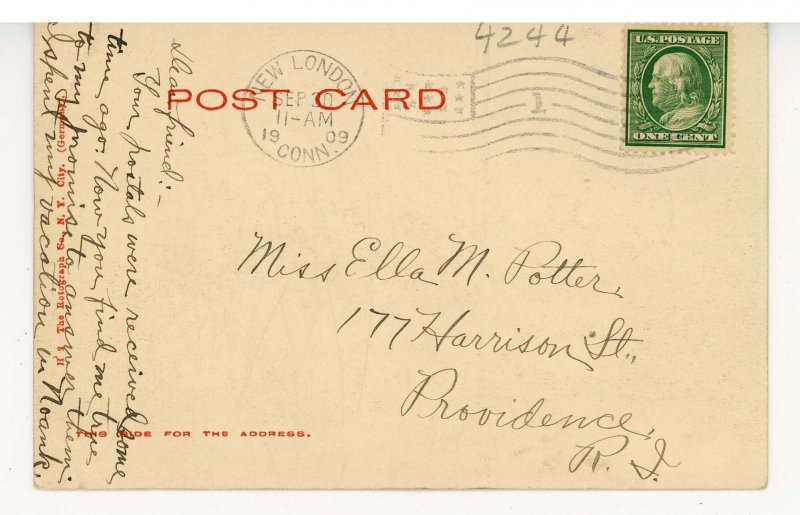 4244
U.S. POSTAGE
ONE CENT
NEW LONDON
SEP 20
11-AM
1909
CONN.
POST CARD
Miss Ella M. Potter,
177 Harrison St.,
Providence,
R. I.
Dear friend:-
Your postals were received some
time ago. Now you find me true
to my promise to answer them.
I spent my vacation in Noank.
H 2 The Rotograph Co., N. Y. City. (Germany)
THIS SIDE FOR THE ADDRESS.